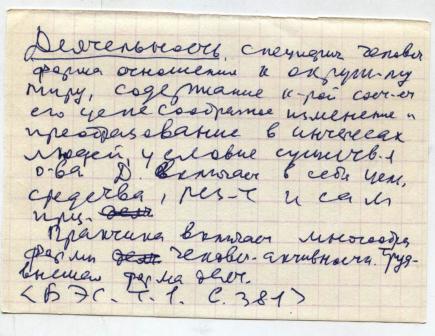 Деятельность, специфич. человеч.
форма отношения к окруж-му
миру, содержание к-рой сост-ет
его целесообразное изменение и
преобразование в интересах
людей, условие сущест-я
о-ва Д. включает в себя цель,
средства, рез-т и сам
проц.
Практика включает многообр.
формы человеч. активности. Труд-
высшая форма деят.
<БЭС. Т. 1. С. 381>